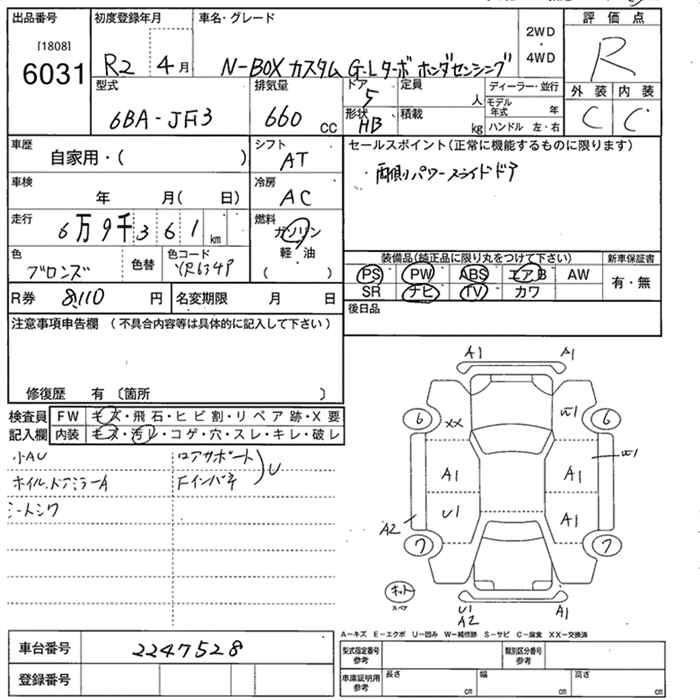 出品番号 初度登録年月 車名・グレード 評価点
[1808]
6031
R2 4月 N-BOX カスタム G・Lターボ ホンダセンシング 2WD・4WD R
型式 排気量 ドア 5 定員 人 ディーラー・並行 外装 内装
6BA-JF3 660 cc 形状 HB 積載 kg モデル年式 年 C C
ハンドル 左・右
車歴 自家用・( ) シフト AT セールスポイント(正常に機能するものに限ります)
・両側パワースライドドア
車検 年 月( 日) 冷房 AC
走行 6万9千361km 燃料 ガソリン
軽・油
( )
色 ブロンズ 色替 色コード YR634P
装備品(純正品に限り丸をつけて下さい) 新車保証書
PS PW ABS エアB AW 有・無
SR ナビ TV カワ
R券 8,110 円 名変期限 月 日 後日品
注意事項申告欄 (不具合内容等は具体的に記入して下さい)
修復歴 有 〔箇所 〕
検査員 FW キズ・飛石・ヒビ割・リペア跡・X要
記入欄 内装 キズ・汚レ・コゲ・穴・スレ・キレ・破レ
小AU コアサポート
ホイル、ドアミラーA Fインパネ U
シートシワ
A1 A1
6 XX W1 6
A1 A1 W1
U1 A1
A2
7 7
キット
スペア
U1 A2 A1
A-キズ E-エクボ U-凹み W-補修跡 S-サビ C-腐食 XX-交換済
車台番号 2247528
登録番号
型式指定番号 参考 類別区分番号 参考
車庫証明用 参考 長さ cm 幅 cm 高さ cm